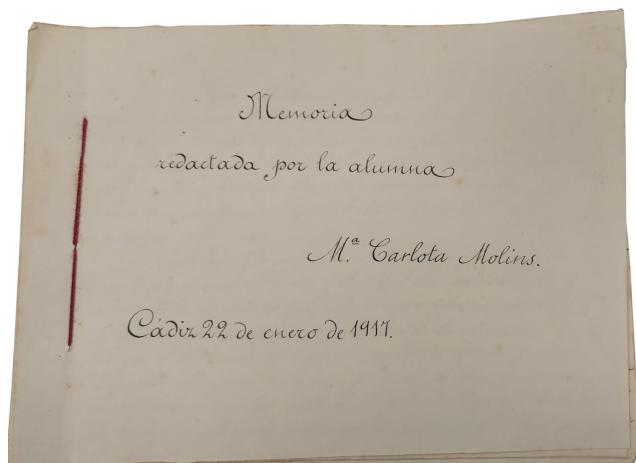 Memoria
redactada por la alumna
M.ª Carlota Molins.
Cádiz 22 de enero de 1917.